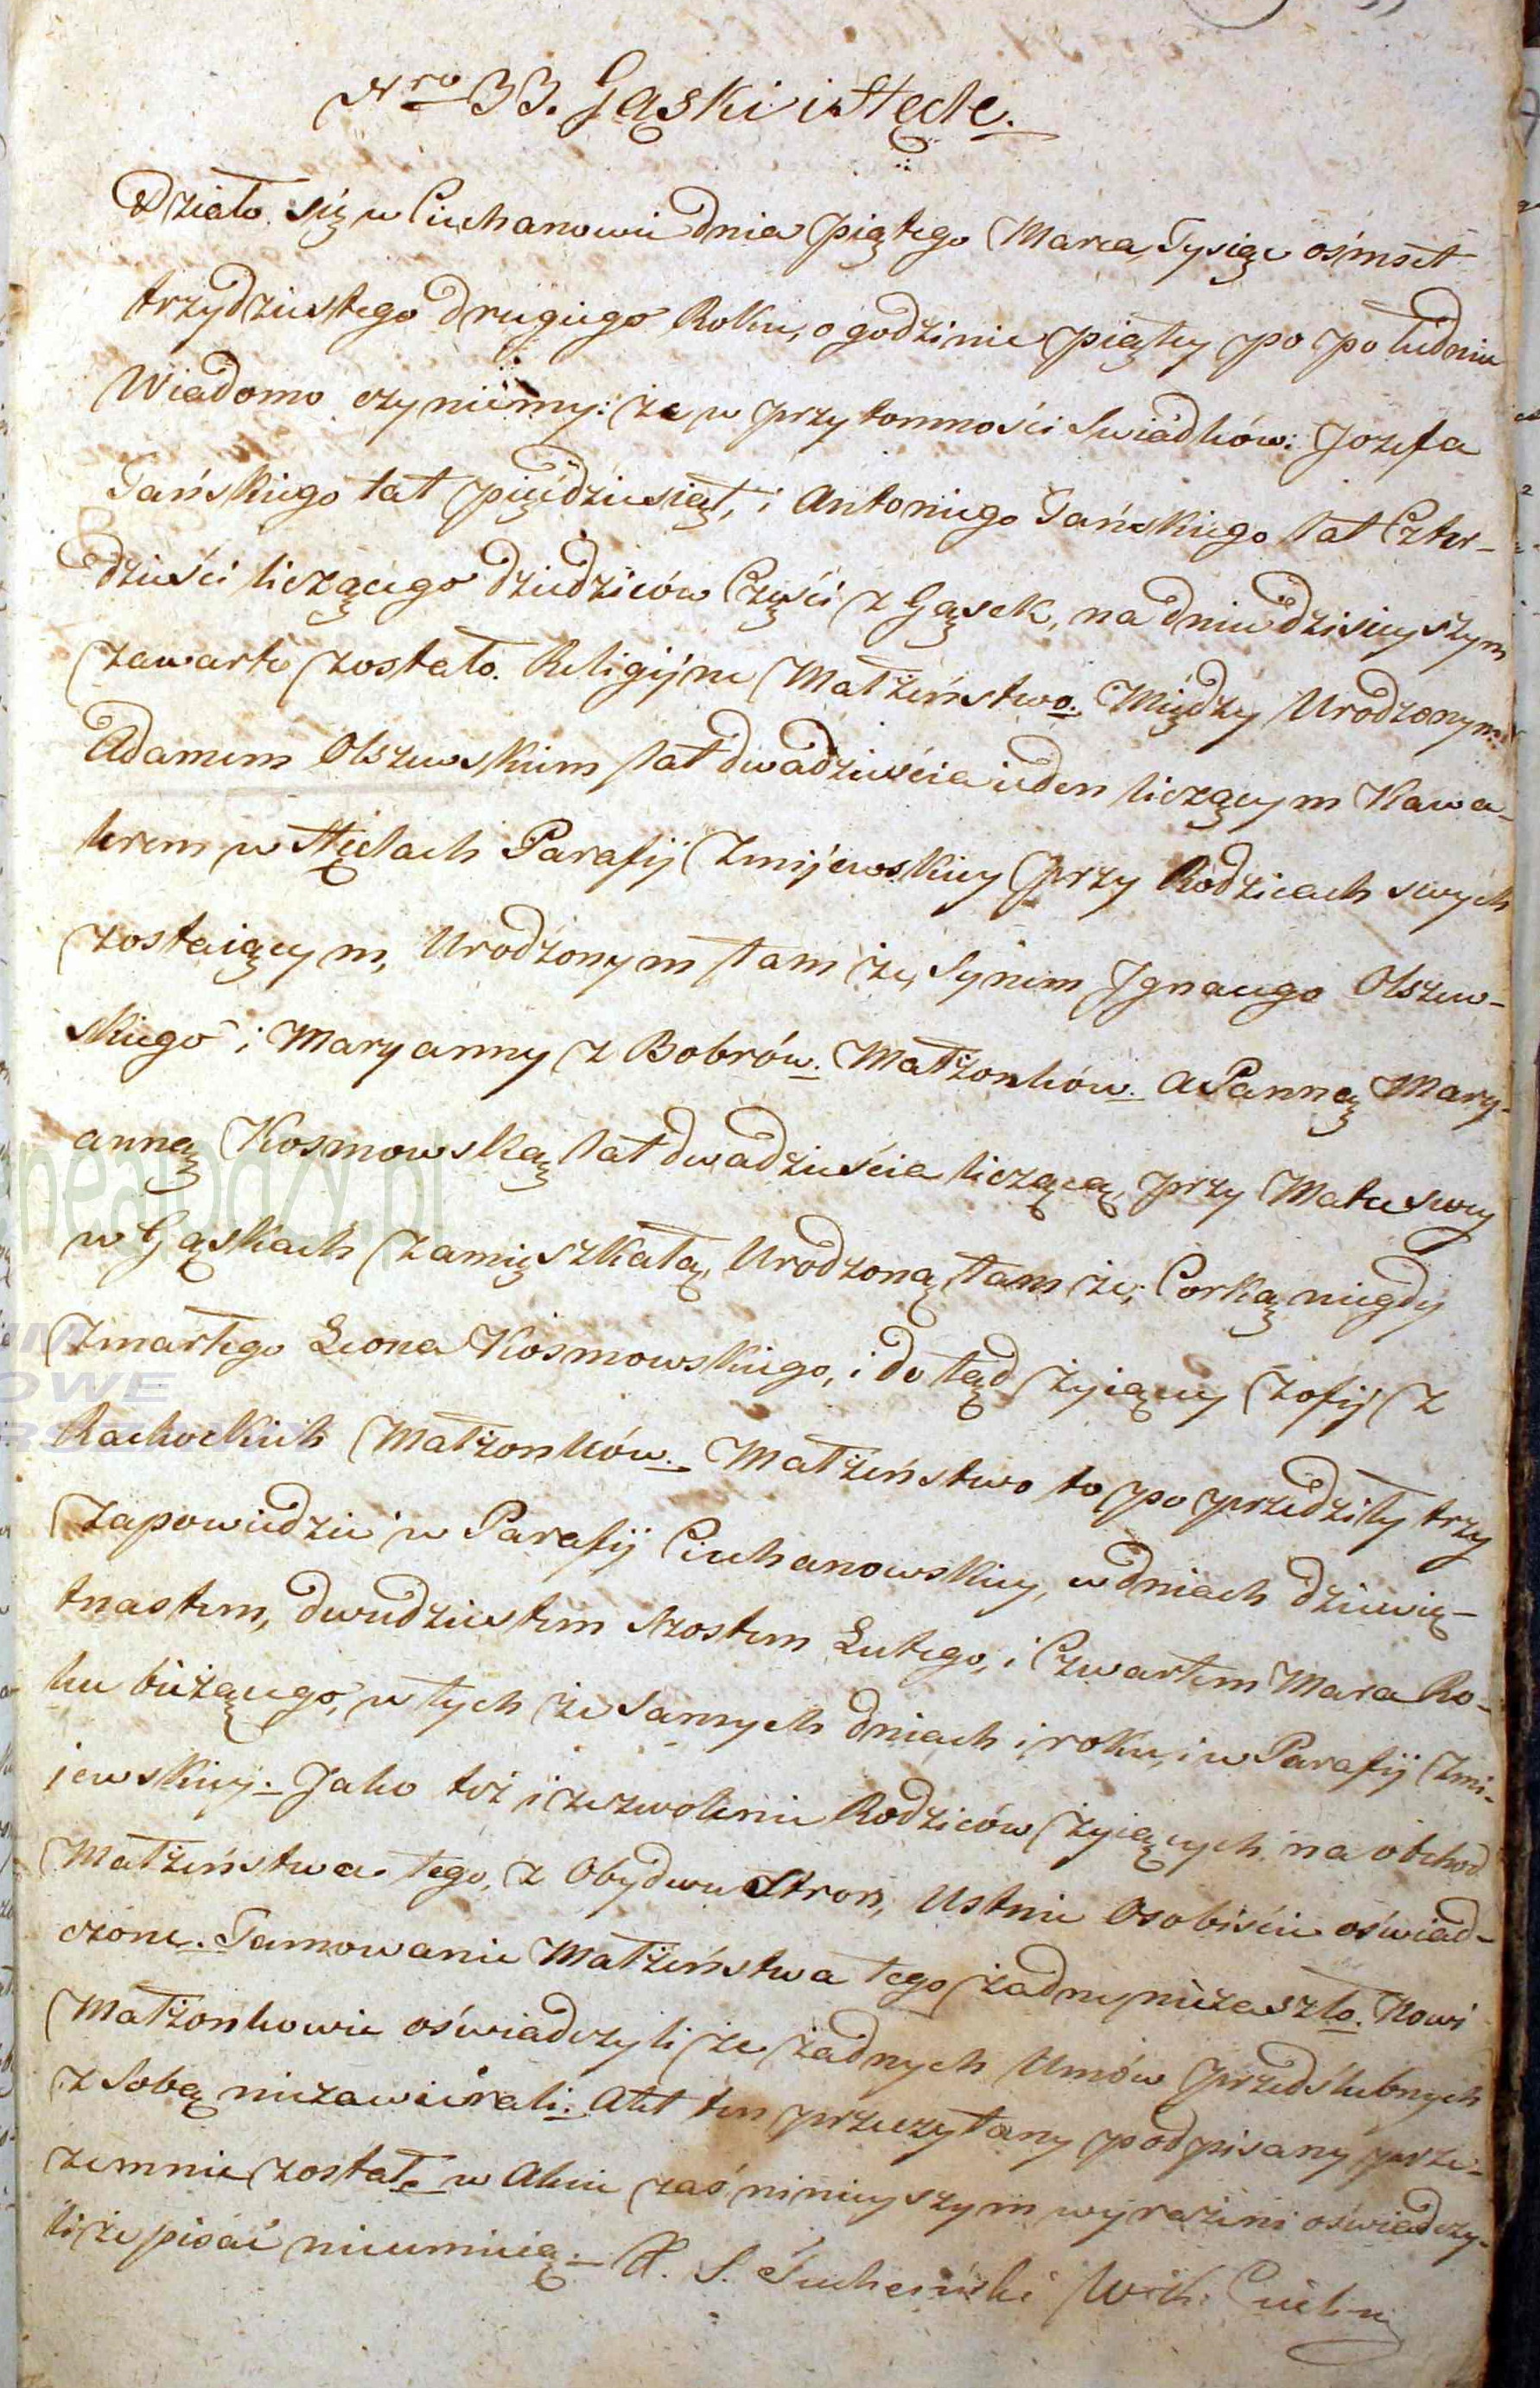 Nro 33. Gąski i Stęcle.
Działo się w Ciechanowie dnia piątego Marca, Tysiąc ośmset
trzydziestego drugiego Roku, o godzinie piątey po południu
Wiadomo czyniemy: że w przytomności Swiadków: Jozefa
Gańskiego lat pięćdziesiąt, i Antoniego Gańskiego lat Czter-
dzieści liczącego Dziedziców Części z Gąsek, na dniu dzisieyszym
zawarte zostało. Religijne Małżeństwo. Między Urodzonym:
Adamem Olszewskim lat dwadzieścia ieden liczącym Kawa-
lerem w Stęclach Parafij Zmijewskiey przy Rodzicach swych
zostaiącym, Urodzonym tam że, Synem Ignacego Olszew-
skiego i Maryanny z Bobrów. Małżonków. A Panną Mary-
anną Kosmowską lat dwadzieścia liczącą, przy Matce swey
w Gąskach zamięszkałą, Urodzoną tam że, Corką niegdy
Zmarłego Leona Kosmowskiego, i do tąd żyiącey Zofij z
Rachockich Małżonków. Małżeństwo to poprzedziły trzy
zapowiedzie w Parafij Ciechanowskiey, w dniach dziewię-
tnastem, dwudziestem szostem Lutego, i Czwartem Marca Ro-
ku bieżącego, w tych że samych dniach i roku, i w Parafij Zmi-
jewskiey. Jako też i zezwolenie Rodziców żyiących na obchod
Małżeństwa tego, z Obydwu Stron, Ustnie Osobiście oświad-
czone. Tamowanie Małżeństwa tego żadny niezaszło. Nowi
Małżonkowie oświadczyli że żadnych Umów przedślubnych
z Sobą niezawierali. Akt ten przeczytany podpisany prze-
zemnie został. w Akcie zaś ninieyszym wyrażeni oświadczy-
li że pisać nieumieią. X. S. W. K. Ciechn
nealodzy.pl
OWE